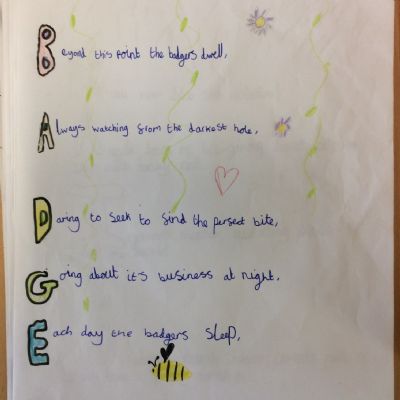 Beyond this Point the badgers dwell,
Always watching from the darkest hole,
Daring to seek to find the perfect bite,
Going about it's business at night,
Each day the badgers sleep,